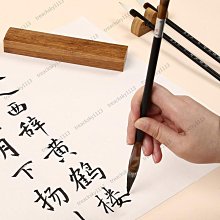 人西辞黄鹤楼
月下扬